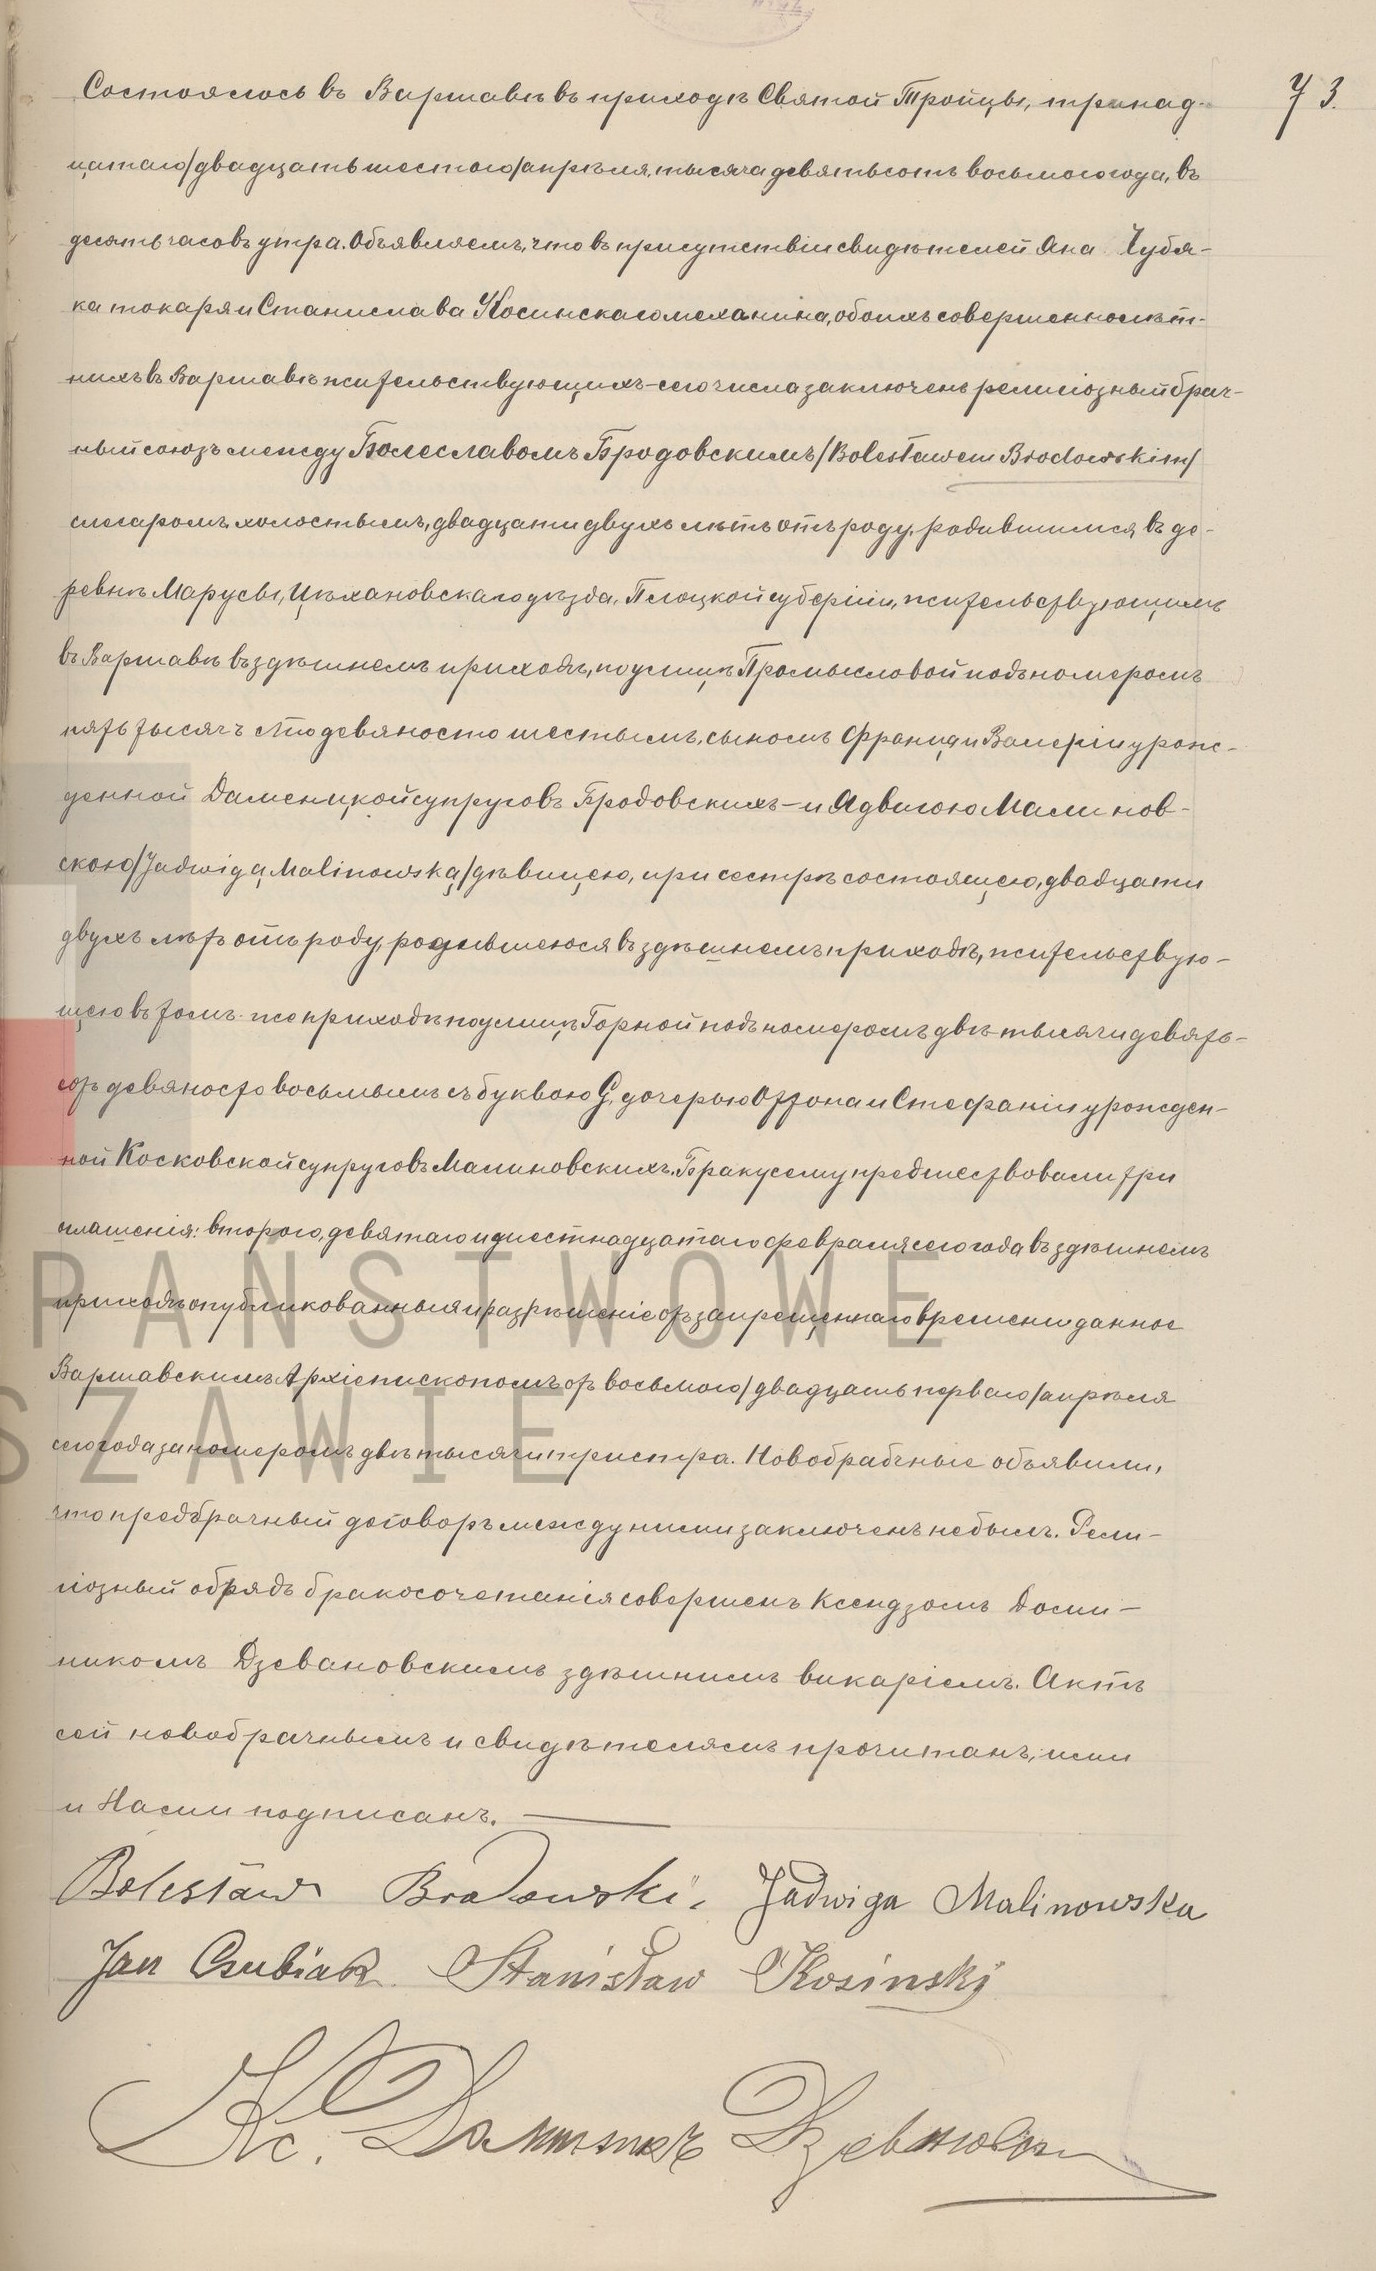 73.
Состоялось въ Варшавѣ въ приходѣ Святой Тройцы, тринад-
цатаго/двадцать шестого/апрѣля, тысяча девятьсотъ восьмого года, въ
десять часовъ утра. Объявляемъ, что въ присутствіи свидѣтелей Яна Чубя-
ка токаря и Станислава Косинскаго механика, обоихъ совершеннолѣт-
нихъ въ Варшавѣ жительствующихъ - сего числа заключенъ религіозный брач-
ный союзъ между Болеславомъ Бродовскимъ/Bolesławem Brodowskim/
слесаромъ, холостымъ, двадцати двухъ лѣтъ отъ роду, родившимся въ де-
ревнѣ Марусы, Цѣхановскаго уѣзда, Плоцкой губерніи, жительствующимъ
въ Варшавѣ въ здѣшнемъ приходѣ, по улицѣ Промысловой подъ номеромъ
пять тысячъ сто девяносто шестымъ, сыномъ Франца и Валеріи урож-
денной Даменицкой супруговъ Бродовскихъ - и Ядвигою Малинов-
скою/Jadwigą Malinowską/дѣвицею, при сестрѣ состоящею, двадцати
двухъ лѣтъ отъ роду, родившеюся въ здѣшнемъ приходѣ, жительствую-
щею въ томъ-же приходѣ по улицѣ Горной подъ номеромъ двѣ тысячи девять-
сотъ девяносто восьмымъ съ буквою G, дочерью Оттона и Стефаніи урожден-
ной Косковской супруговъ Малиновскихъ. Браку сему предшествовали три
оглашенія: второго, девятаго и шестнадцатаго февраля сего года въ здѣшнемъ
приходѣ опубликованныя и разрѣшеніе отъ запрещеннаго времени данное
Варшавскимъ Архіепископомъ отъ восьмого/двадцать перваго/апрѣля
сего года за номеромъ двѣ тысячи триста. Новобрачные объявили,
что предбрачный договоръ между ними заключенъ не былъ. Рели-
гіозный обрядъ бракосочетанія совершенъ Ксендзомъ Доми-
никомъ Дзевановскимъ здѣшнимъ викаріемъ. Актъ
сей новобрачнымъ и свидѣтелямъ прочитанъ, ими
и Нами подписанъ.
Bolesław Brodowski, Jadwiga Malinowska
Jan Czubiak Stanisław Kosinski
Кс. Доминикъ Дзевановски
PAŃSTWOWE
SZAWIE